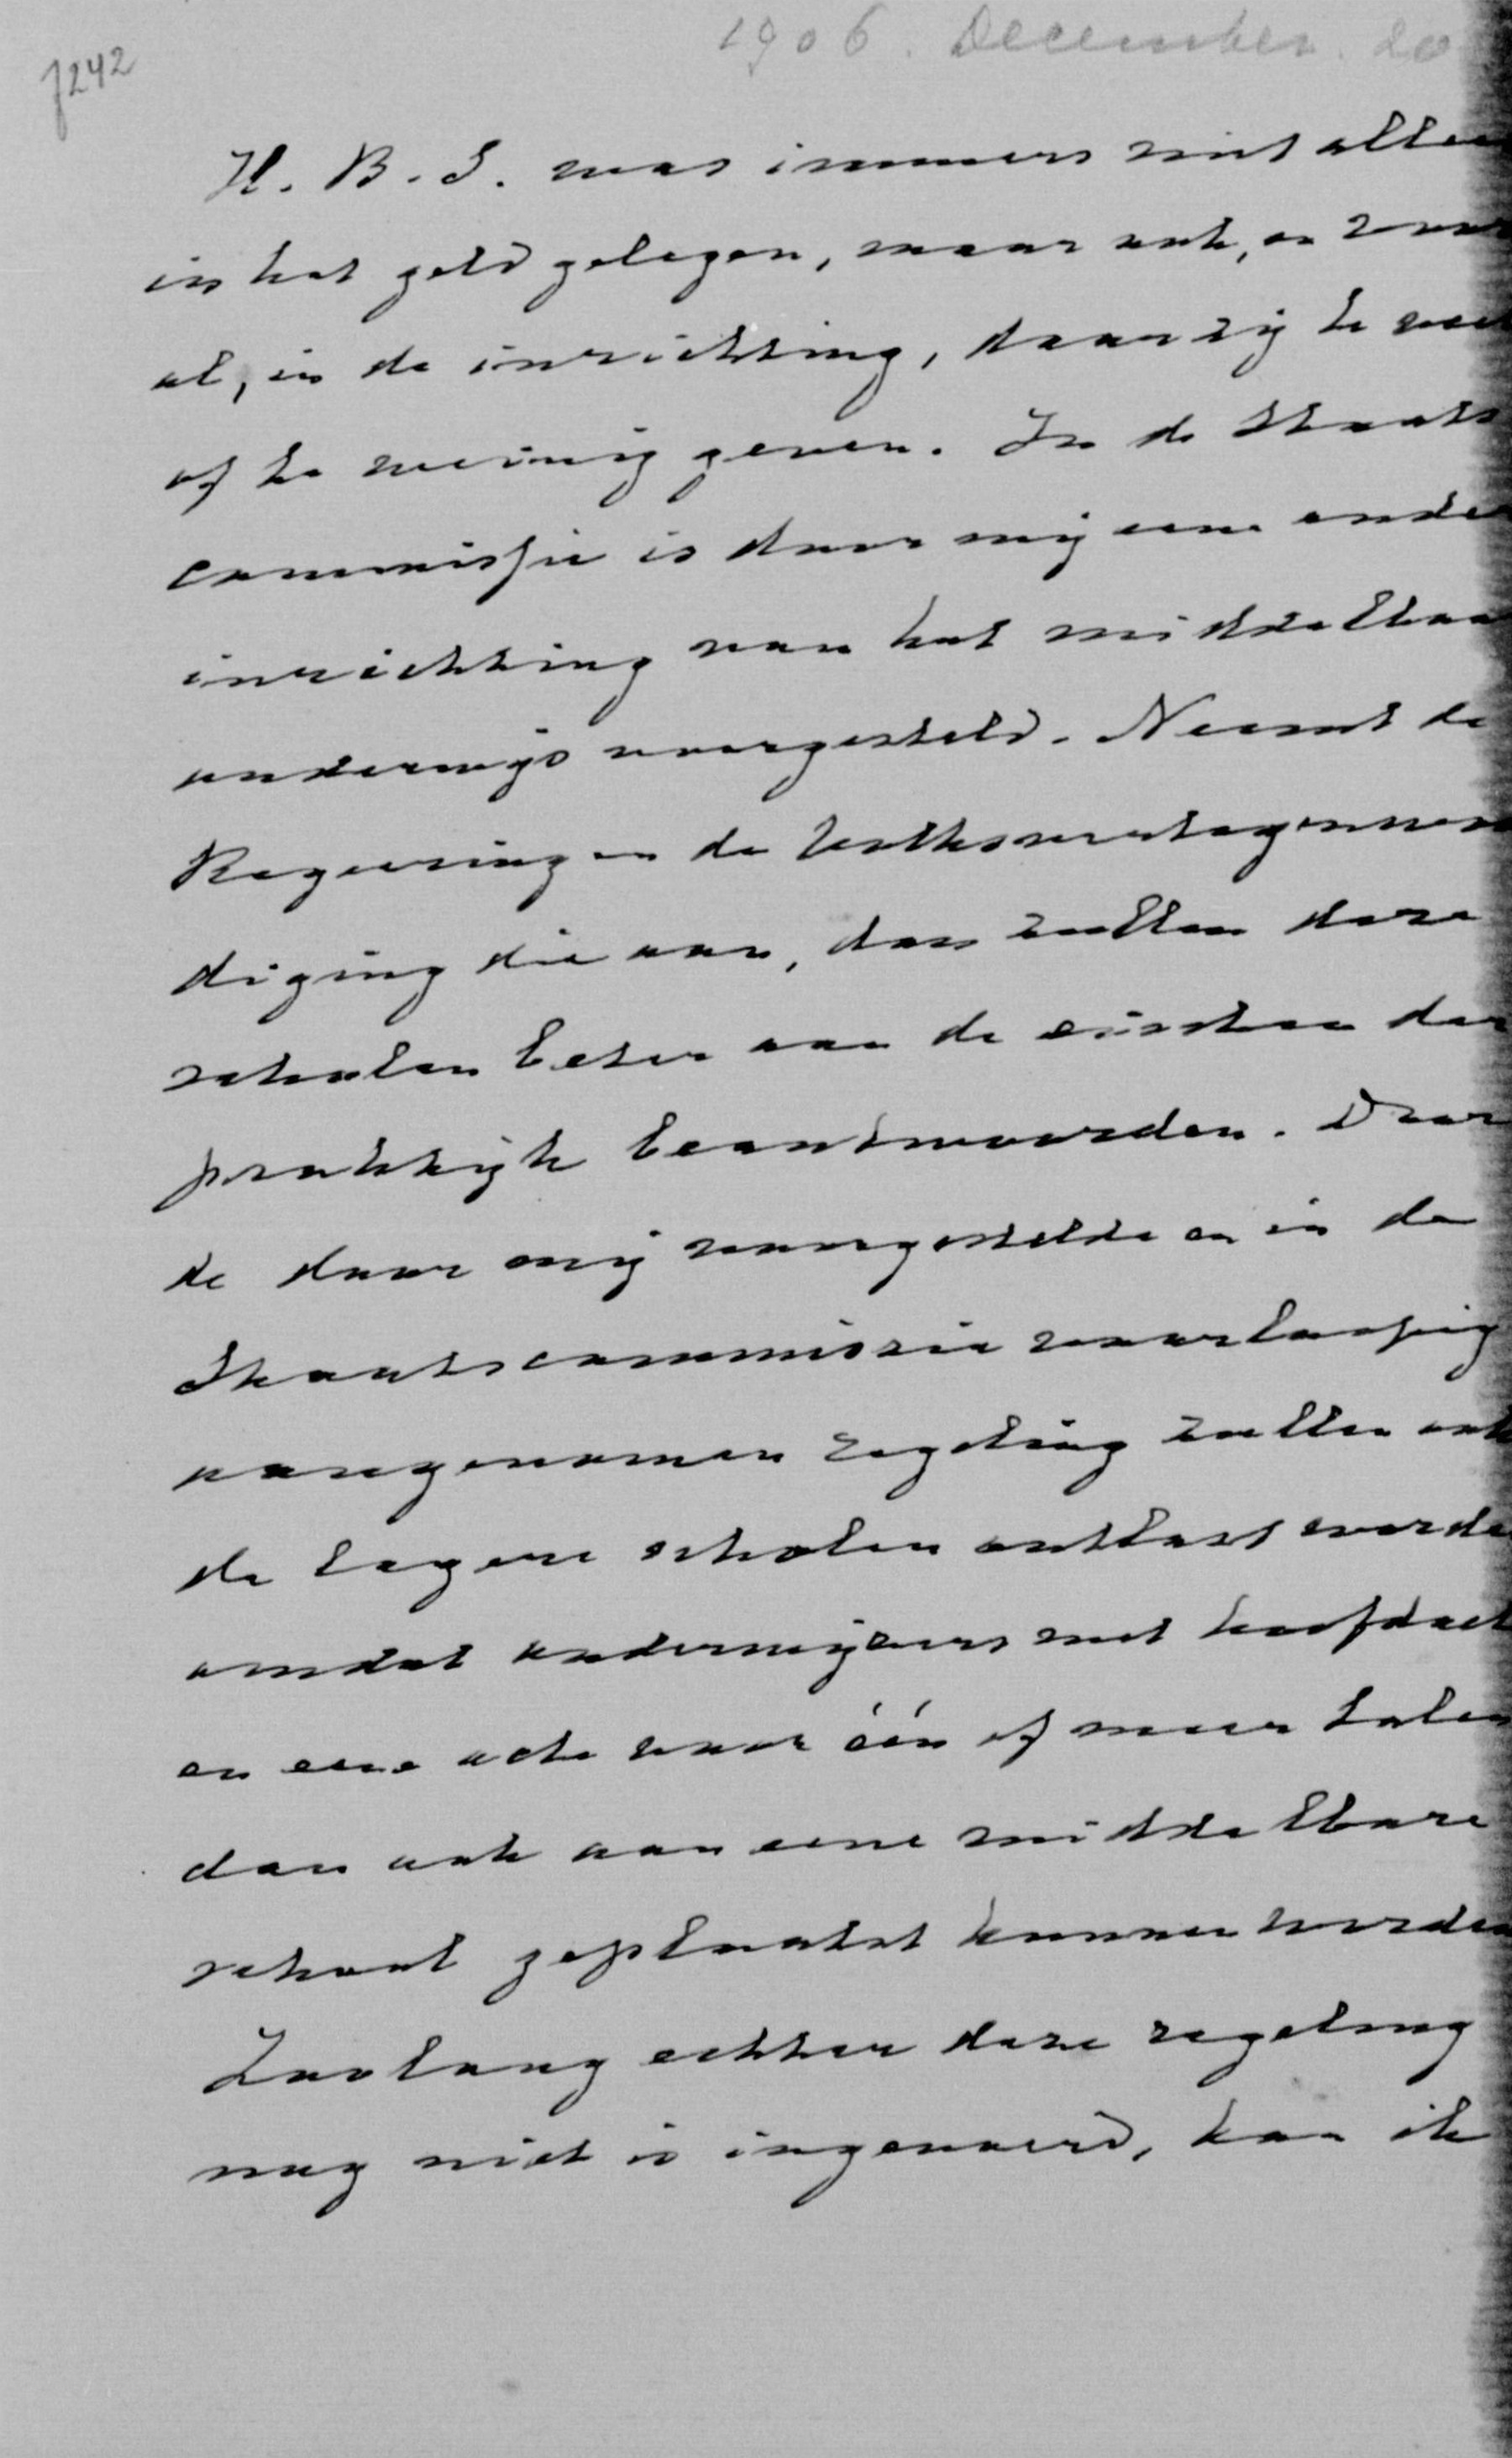 1906. December. 20
7242
H. B. S. was immers niet alleen
in het geld gelegen, maar ook, en voor
al, in de inrichting, daar zij te veel
of te weinig geven. In de Staats
commissie is door mij eene ande
inrichting van het middelbaa
onderwijs voorgesteld. Neemt de
Regeering en de Volksvertegenwoor
diging die aan, dan zullen deze
scholen beter aan de eischen der
praktijk beantwoorden. Door
de door mij voorgestelde en in de
Staatscommissie voorloopig
aangenomen regeling zullen ook
de lagere scholen ontlast worde
omdat onderwijzers met hoofdact
en eene acte voor één of meer talen
dan ook aan eene middelbare
school geplaatst kunnen worden
Zoolang echter deze regeling
nog niet is ingevoerd, kan ik